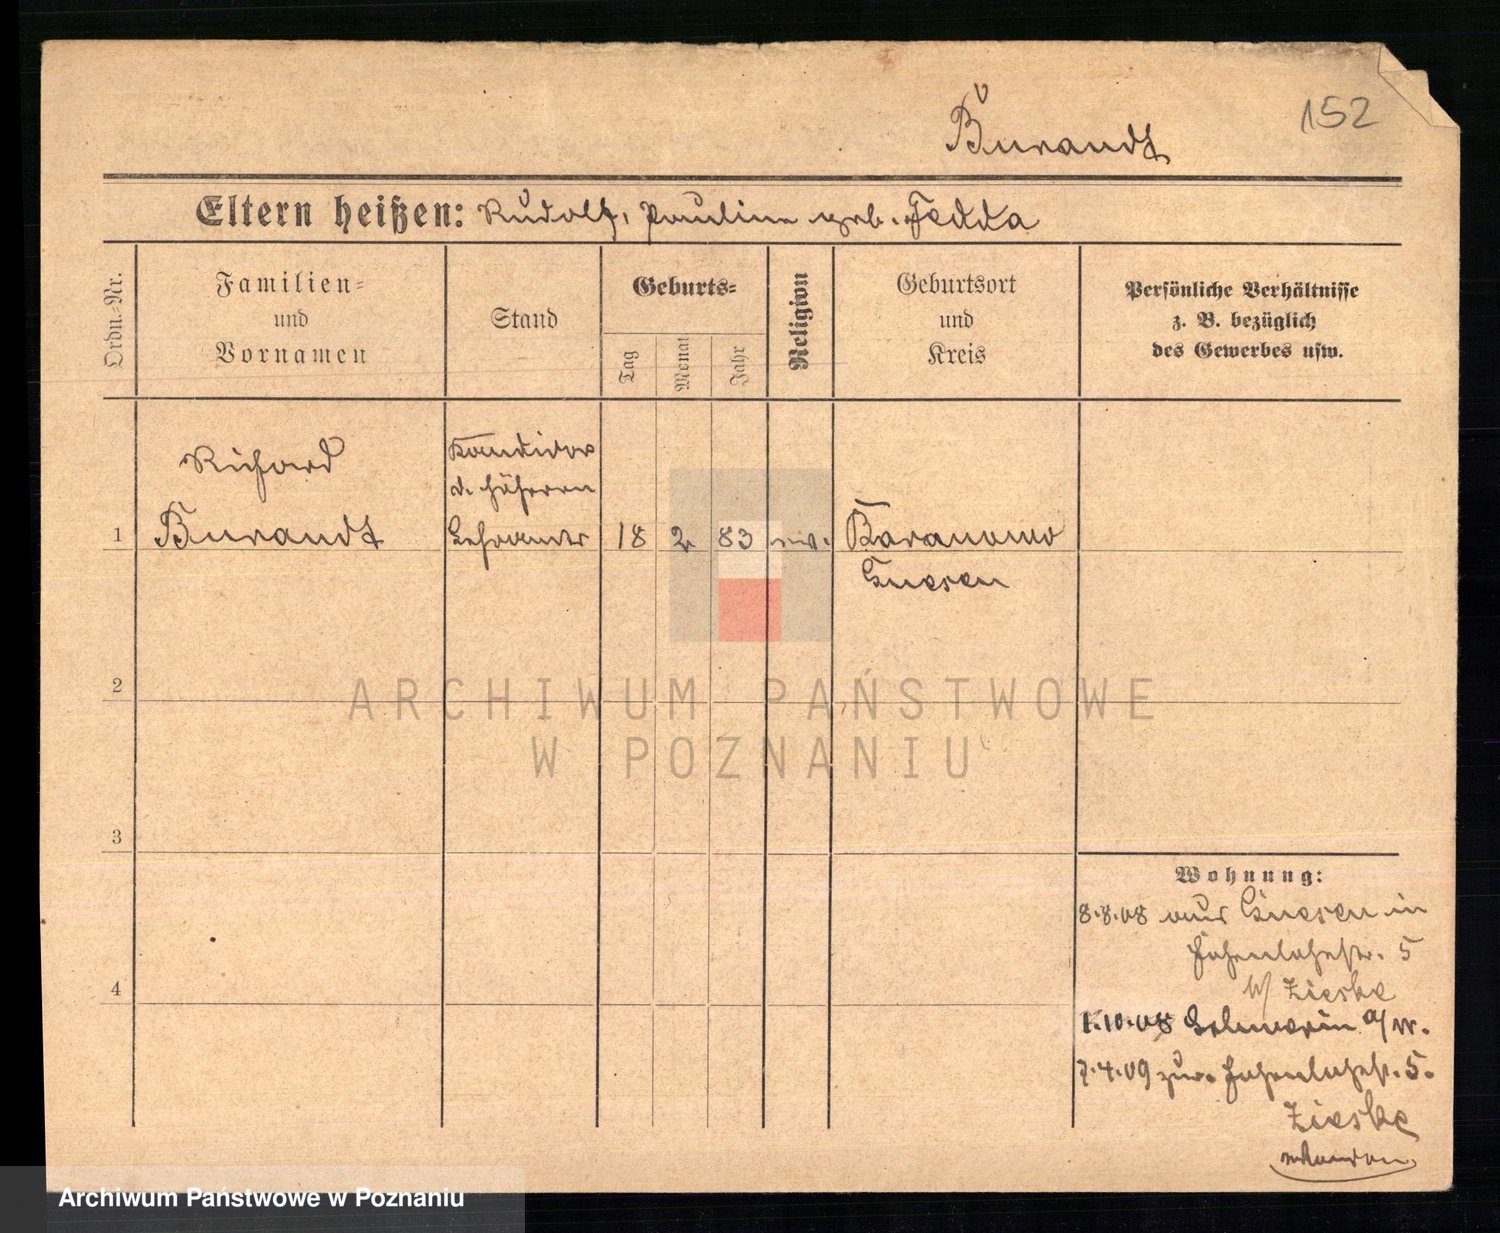 152
Burandt
Eltern heißen: Rudolf, Pauline geb. Fedda
Ordn.-Nr.
Familien-
und
Vornamen
Stand
Geburts-
Tag
Monat
Jahr
Religion
Geburtsort
und
Kreis
Persönliche Verhältnisse
z. B. bezüglich
des Gewerbes usw.
Richard
Kandidat
d. höheren
1 Burandt Lehramts 18 2 83 Baranowo
Gnesen
2
ARCHIWUM PAŃSTWOWE
W POZNANIU
3
Wohnung:
8.8.08 aus Gnesen in
Hohenlohestr. 5
b/ Zieske
4
1.10.08 Schwerin a/W.
7.4.09 zur. Hohenlohestr. 5.
Zieske
Archiwum Państwowe w Poznaniu